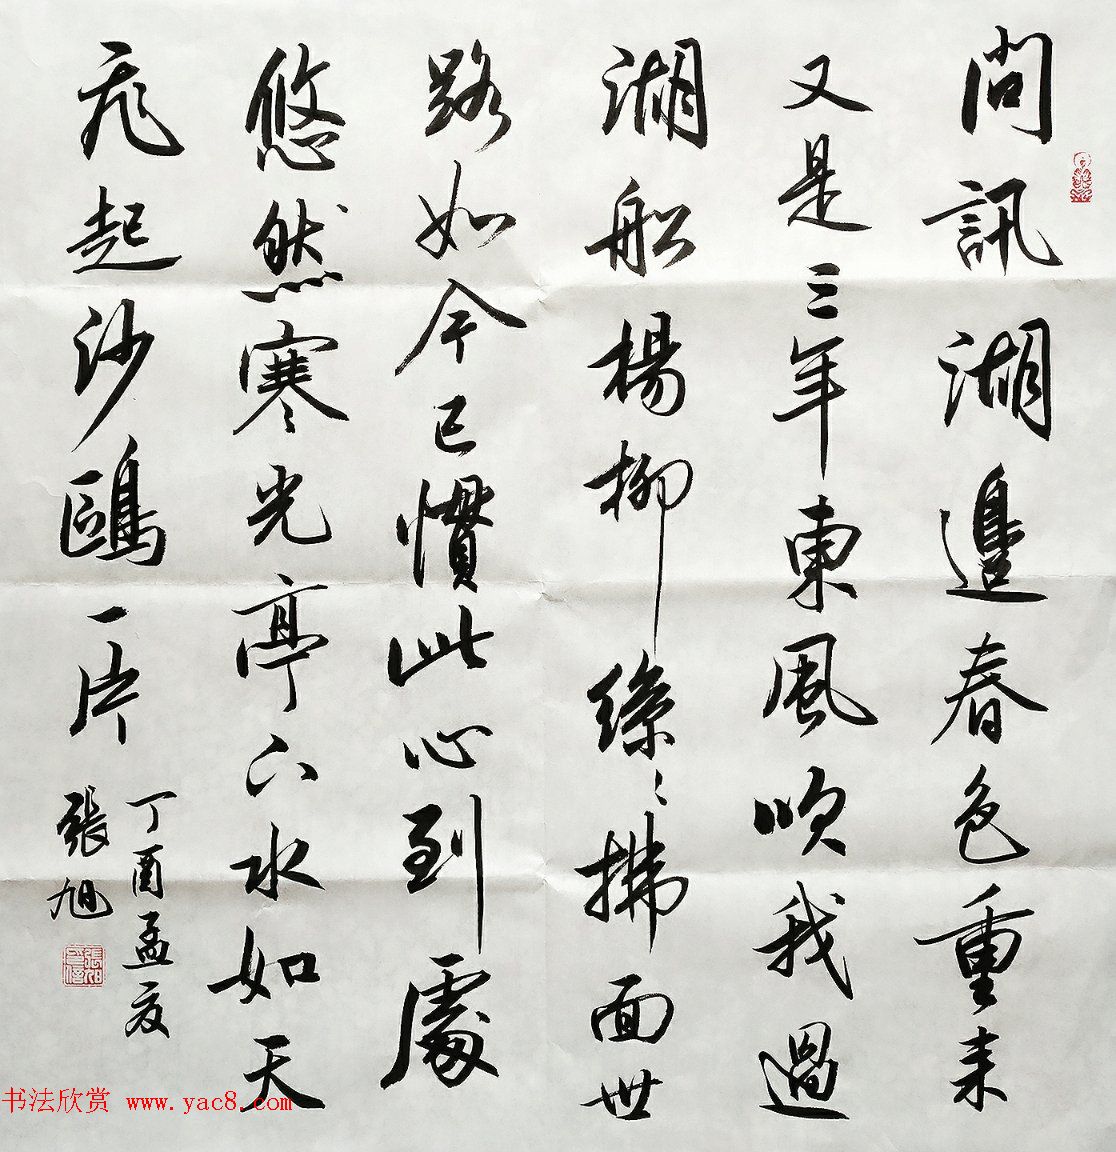 問訊湖邊春色重来
又是三年東風吹我過
湖船楊柳絲〻拂面世
路如今已慣此心到處
悠然寒光亭下水如天
飛起沙鷗一片
丁酉孟夏
張旭
书法欣赏 www.yac8.com